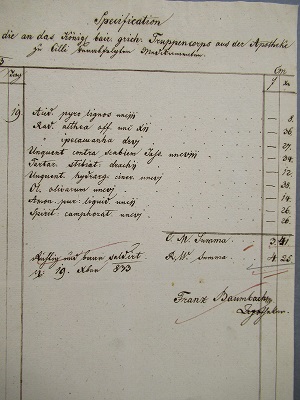 Specification
die an das Königl. bair. grich. Truppencorps aus der Apotheke
zu Cilli verabfolgten Medikamenten.
Tag
f x
19. Acid. pyro lignos uncjj 8.
Rad. althea off. unc xjj 36.
" ipecacuanha drcj 27.
Unguent contra scabiem 24.
Tartar. stibiat: drachj 12.
Unguent. hydrarg: ciner. uncvj 28.
Ol. olivarum uncvj 14.
Amon. pur: liquid. uncvj 26.
Spirit: camphorat uncvj 26.
C. M. Summa. 3 41
R. W. Summa. 4 25
Richtig und baar saldirt
19. Xber 833
Franz Baumbach
Apotheker.